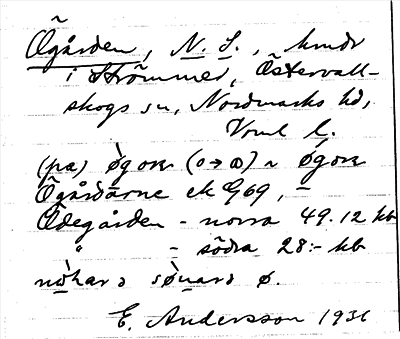 Ögården, N. S., hmdr
i Strömmer, Östervall-
skogs sn, Nordmarks hd,
Vrml l.
(pɐ) øgoɐ (o→ɷ) ~ øgoɐ
Ögårdarne ek 969, —
Ödegården - norra 49.12 kb
" - södra 28:- kb
E. Andersson 1936